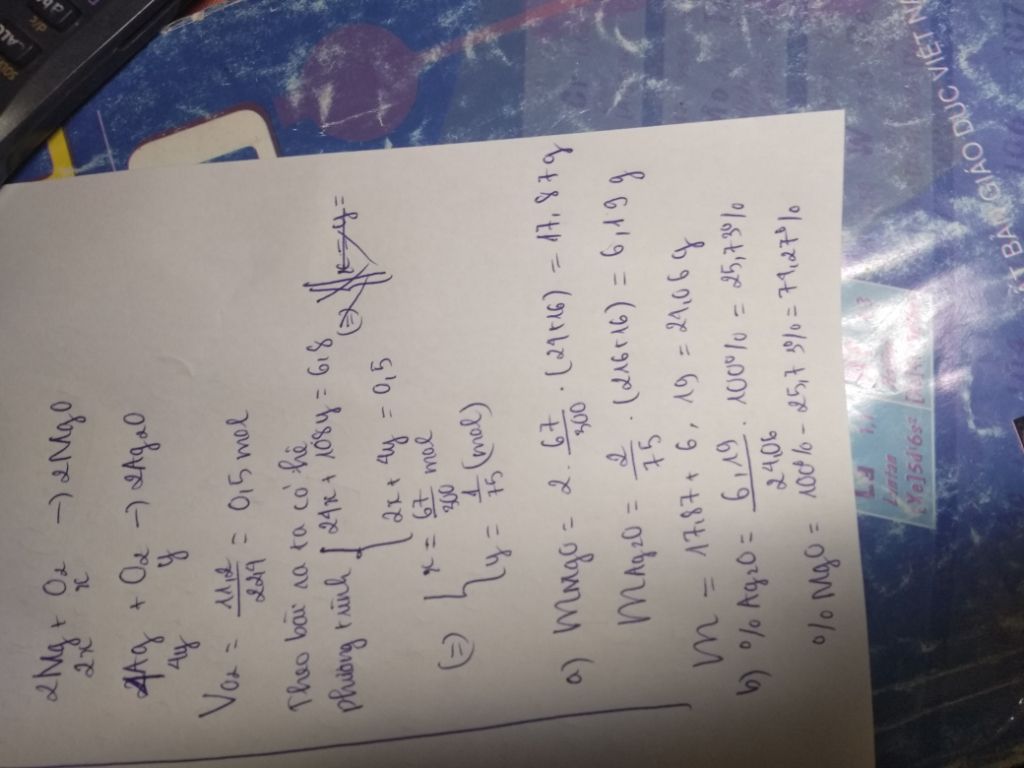 2Mg + O2 → 2MgO
2x x
4Ag + O2 → 2Ag2O
4y y
VO2 = 11,2 / 22,4 = 0,5 mol
Theo bài ra ta có hệ
phương trình { 24x + 108y = 6,8
2x + 4y = 0,5
(=) x - y =
(=) { x = 67/300 mol
y = 1/75 (mol)
a) mMgO = 2 . 67/300 . (24+16) = 17,87g
mAg2O = 2/75 . (216+16) = 6,19 g
m = 17,87 + 6,19 = 24,06 g
b) % Ag2O = 6,19 / 24,06 . 100% = 25,73%
% MgO = 100% - 25,73% = 74,27%
T BẢN GIÁO DỤC VIỆT NA